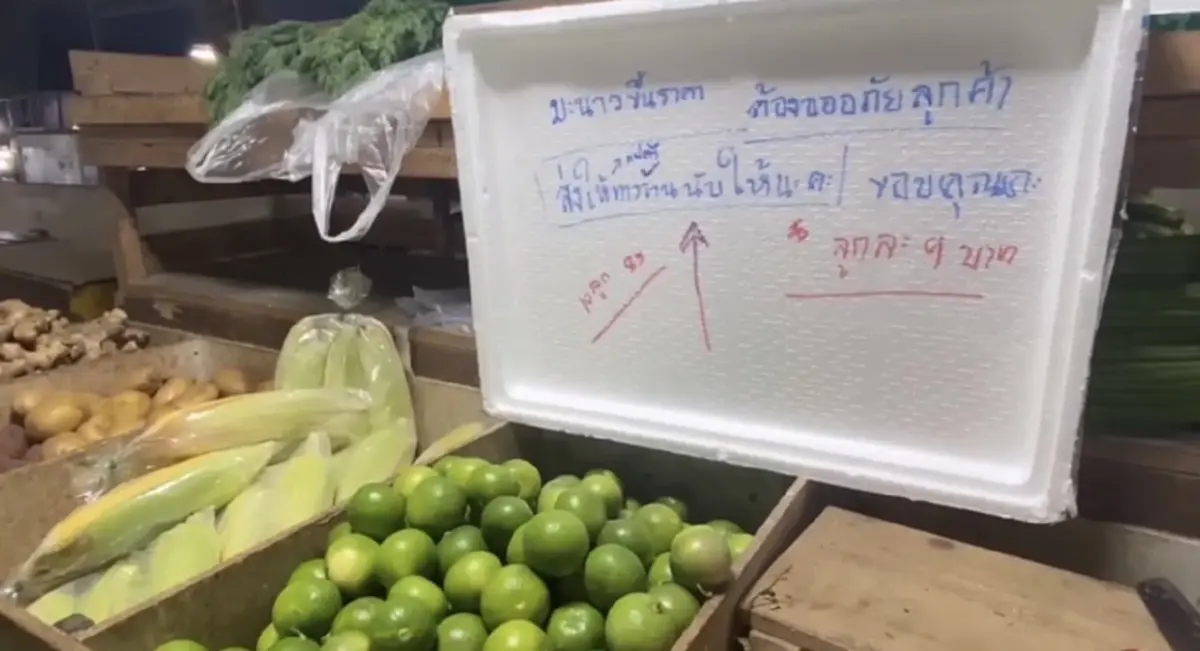 มะนาวขึ้นราคา ต้องขออภัยลูกค้า
ส่งให้ทางร้านนับให้นะคะ ขอบคุณคะ
ลูกละ 9 บาท